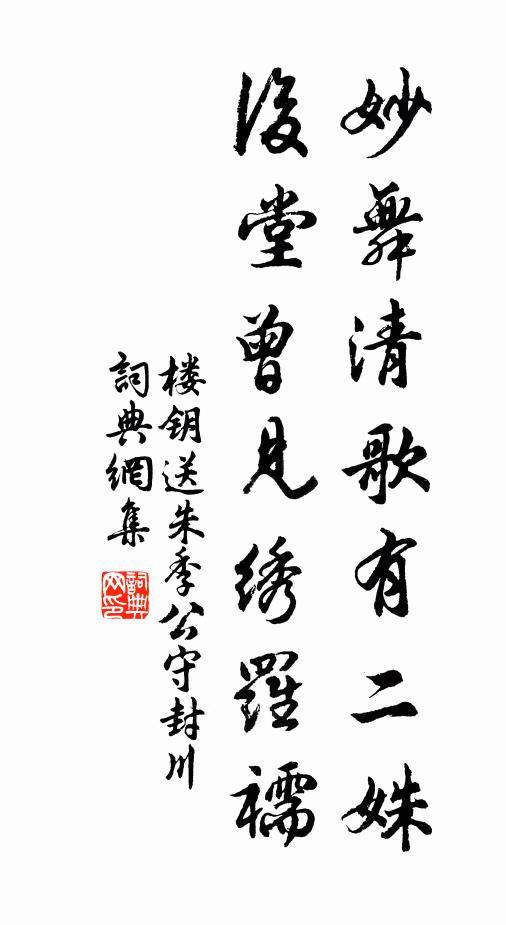 妙舞清歌有二姝
後堂曾見绣羅襦
楼钥送朱季公守封川
詞典網集
詞典网印